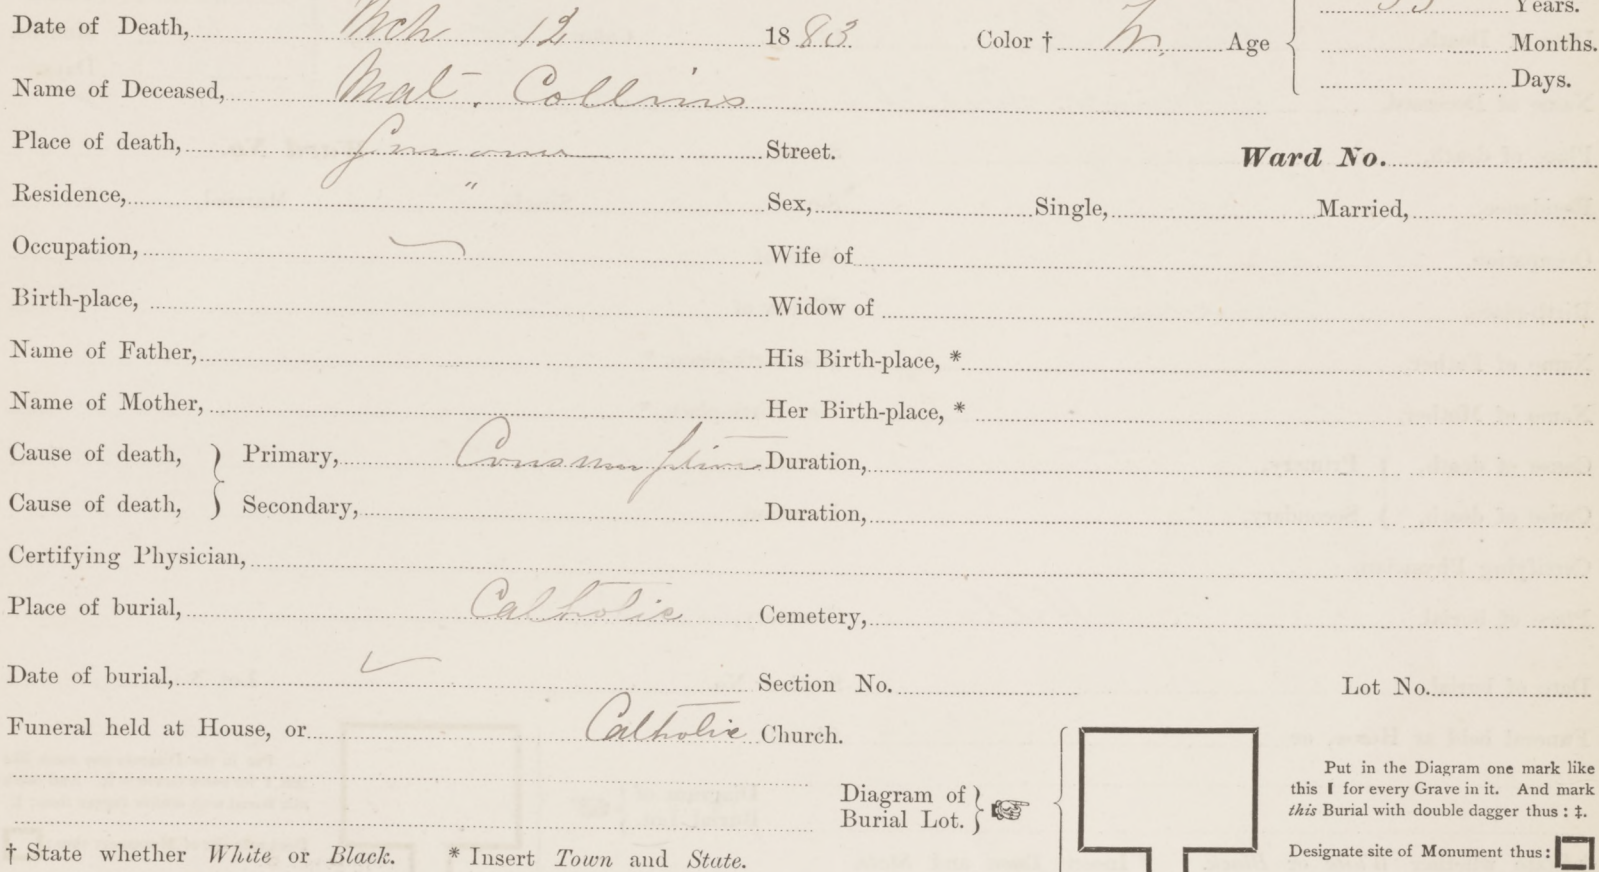 Years.
Date of Death, Mch 12 1883 Color † W. Age
Months.
Days.
Name of Deceased, Mat. Collins
Place of death, Street. Ward No.
Residence, " Sex, Single, Married,
Occupation, Wife of
Birth-place, Widow of
Name of Father, His Birth-place, *
Name of Mother, Her Birth-place, *
Cause of death, } Primary, Consumption Duration,
Cause of death, } Secondary, Duration,
Certifying Physician,
Place of burial, Catholic Cemetery,
Date of burial, Section No. Lot No.
Funeral held at House, or Catholic Church.
Diagram of
Burial Lot. } ☞
Put in the Diagram one mark like
this I for every Grave in it. And mark
this Burial with double dagger thus : ‡.
Designate site of Monument thus :
† State whether White or Black. * Insert Town and State.